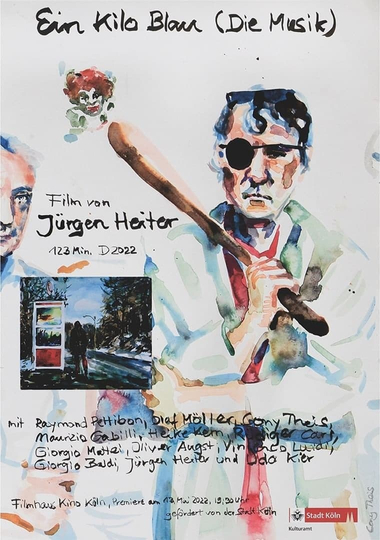 Ein Kilo Blau (Die Musik)
Film von
Jürgen Heiter
123 Min. D 2022
mit Raymond Pettibon, Olaf Möller, Cony Theis,
Maurizio Gabilli, Heike Kern,
Giorgio Mattei, Oliver Augst, Vincenzo
Giorgio Baldi, Jürgen Heiter und Udo Kier
Filmhaus Kino Köln, Premiere am 12. Mai 2022, 19.30 Uhr
gefördert von der Stadt Köln
Stadt Köln
Kulturamt
Cony Theis